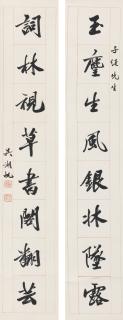 子先生
玉麈生風銀牀墜露
詞林視草書閣翻芸
吳湖帆